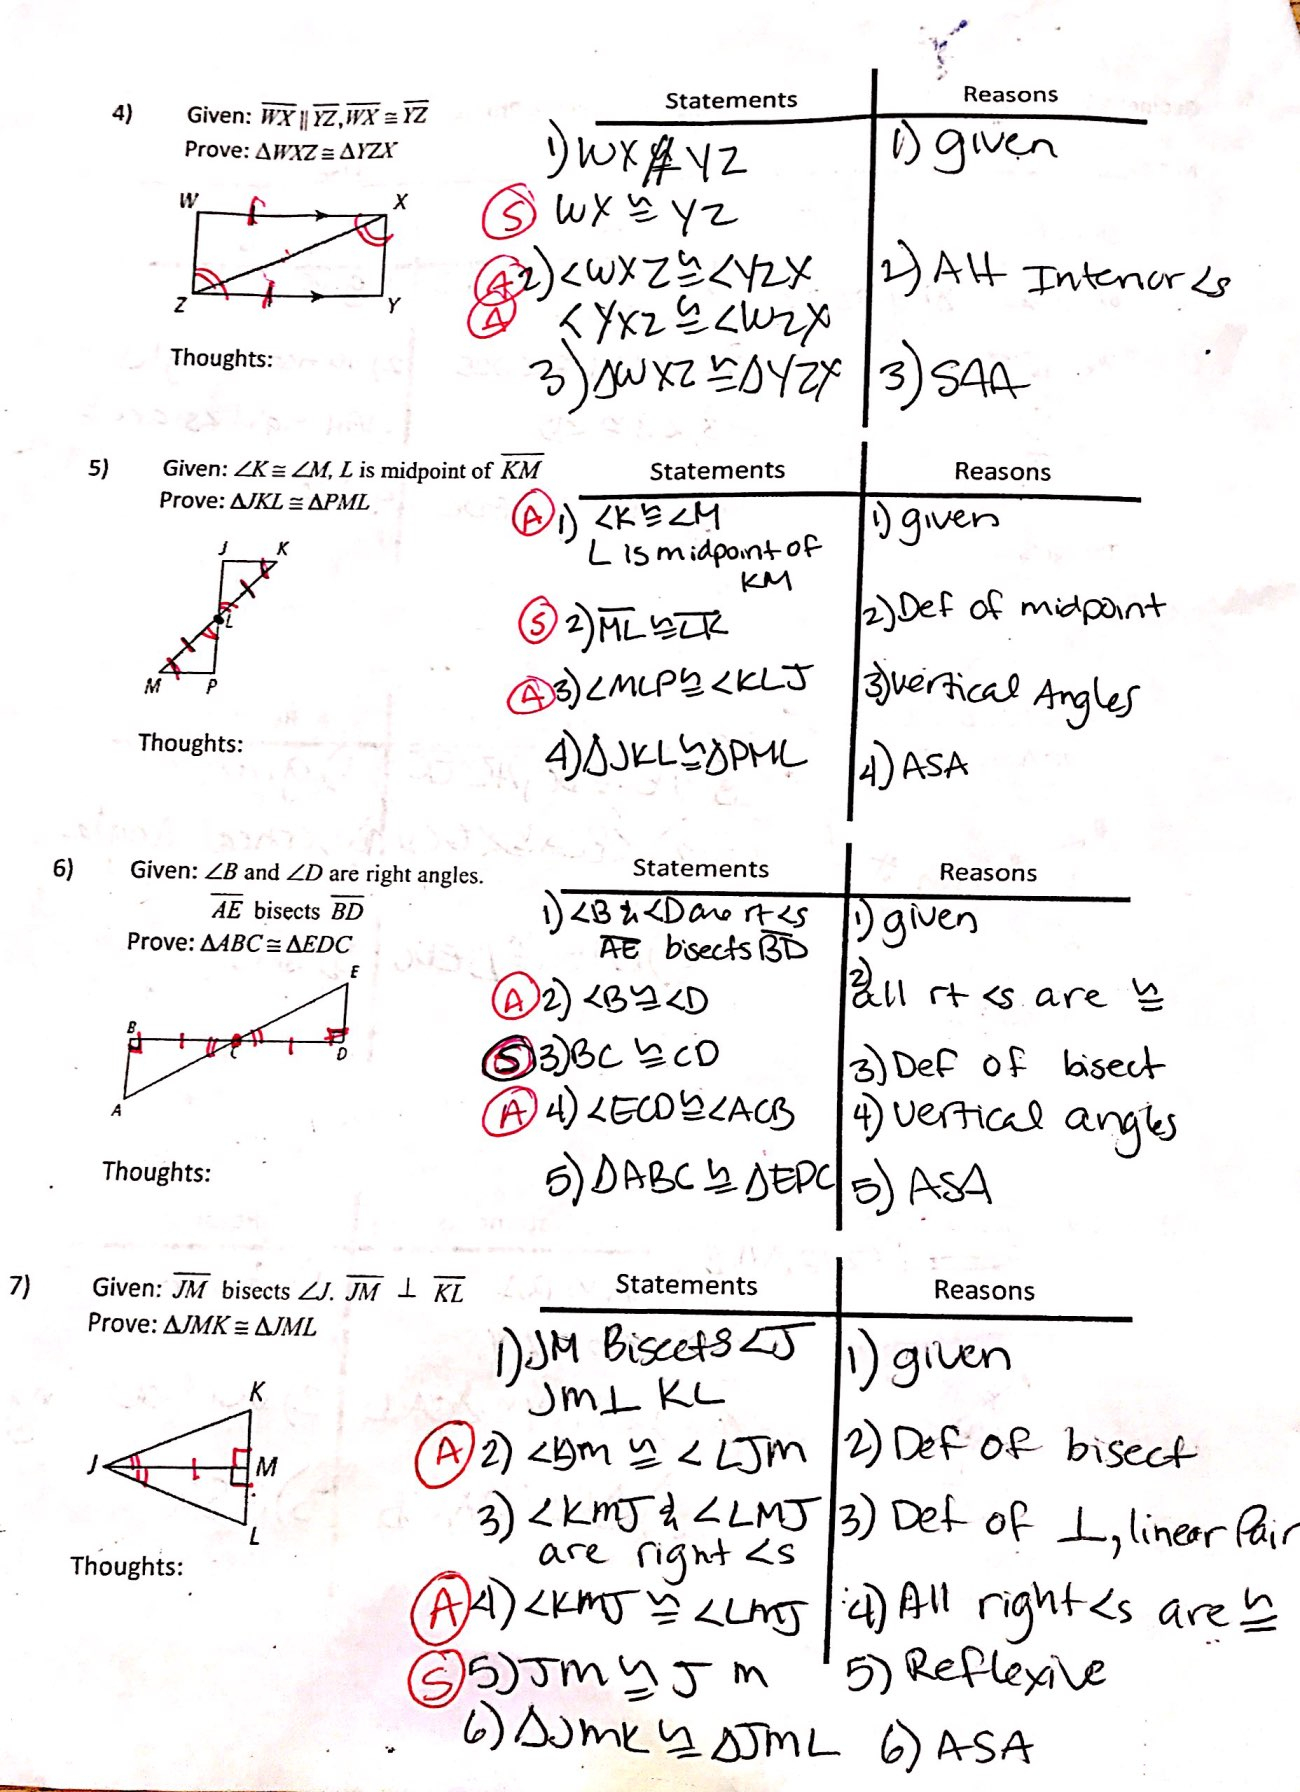 4) Given: WX ∥ YZ, WX ≅ YZ
Prove: ΔWXZ ≅ ΔYZX
W X
Z Y
Thoughts:
Statements Reasons
1) WX ∥ YZ 1) given
S WX ≅ YZ
A 2) <WXZ ≅ <YZX 2) Alt Interior <s
A <YXZ ≅ <WZX
3) ΔWXZ ≅ ΔYZX 3) SAA
5) Given: ∠K ≅ ∠M, L is midpoint of KM
Prove: ΔJKL ≅ ΔPML
J K
L
M P
Thoughts:
Statements Reasons
A 1) <K ≅ <M 1) given
L is midpoint of
KM
S 2) ML ≅ LK 2) Def of midpoint
A 3) <MLP ≅ <KLJ 3) Vertical Angles
4) ΔJKL ≅ ΔPML 4) ASA
6) Given: ∠B and ∠D are right angles.
AE bisects BD
Prove: ΔABC ≅ ΔEDC
E
B C D
A
Thoughts:
Statements Reasons
1) <B & <D are rt <s 1) given
AE bisects BD
A 2) <B ≅ <D 2) all rt <s are ≅
S 3) BC ≅ CD 3) Def of bisect
A 4) <ECD ≅ <ACB 4) Vertical angles
5) ΔABC ≅ ΔEDC 5) ASA
7) Given: JM bisects ∠J. JM ⊥ KL
Prove: ΔJMK ≅ ΔJML
K
J M
L
Thoughts:
Statements Reasons
1) JM Biscets <J 1) given
JM ⊥ KL
A 2) ≅ <LJM 2) Def of bisect
3) <KMJ & <LMJ 3) Def of ⊥, linear Pair
are right <s
A 4) <KMJ ≅ <LMJ 4) All right <s are ≅
S 5) JM ≅ JM 5) Reflexive
6) ΔJMK ≅ ΔJML 6) ASA